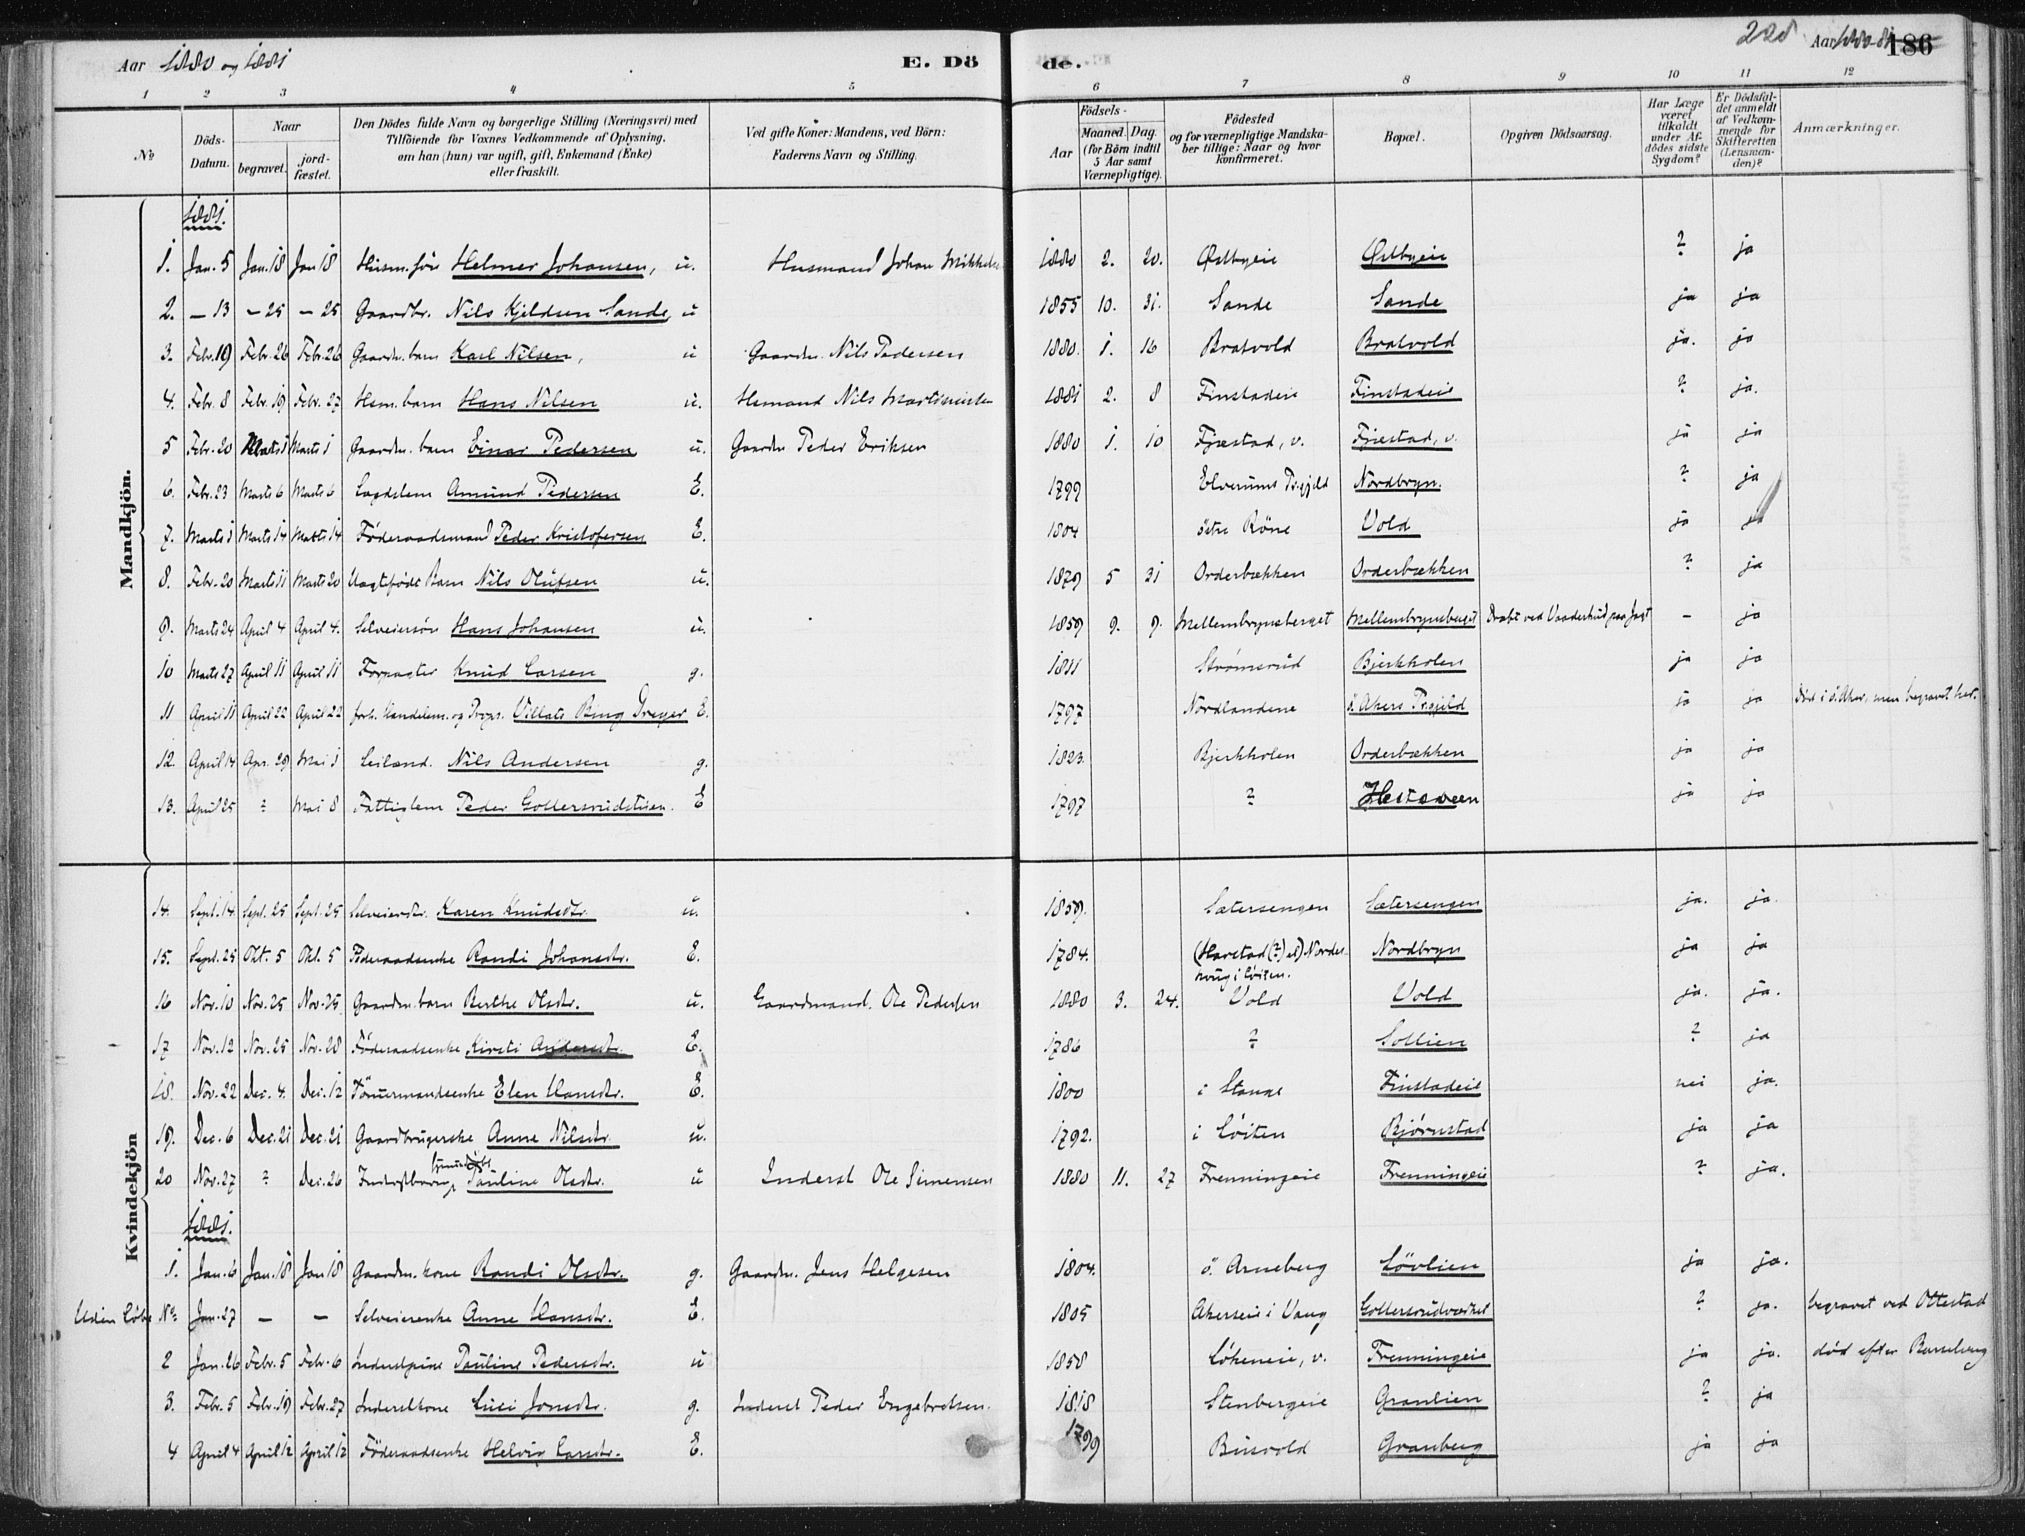 Aar 1880 og 1881 E. Dö de. 228 Aar 1880-81 186
1 2 3 4 5 6 7 8 9 10 11 12
No Döds-Datum. Naar begravet. jord-fæstet. Den Dödes fulde Navn og borgerlige Stilling (Næringsvei) med Tilföiende for Voxnes Vedkommende af Oplysning, om han (hun) var ugift, gift, Enkemand (Enke) eller fraskilt. Ved gifte Koner: Mandens, ved Börn: Faderens Navn og Stilling. Födsels- Aar Maaned. Dag. (for Börn indtil 5 Aar samt Værnepligtige). Födested og for værnepligtige Mandska-ber tillige: Naar og hvor konfirmeret. Bopæl. Opgiven Dödsaarsag. Har Læge været tilkaldt under Af-dödes sidste Sygdom? Er Dödsfal-det anmeldt af Vedkom-mende for Skifteretten (Lensman-den)? Anmærkninger.
Mandkjön.
1881.
1. Jan. 5 Jan. 18 Jan 18 Husm. sön Helmer Johansen, u. Husmand Johan Mikkels 1880 2. 20. Østbyeie Østbyeie ? ja
2. — 13 — 25 — 25 Gaardbr. Nils Kjeldsen Sande u 1855 10. 31. Sande Sande ja ja
3. Febr. 19 Febr. 26 Febr. 26 Gaardm. barn Karl Nilsen, u Gaardm. Nils Pedersen 1880. 1. 16 Bratvold Bratvold ja. ja
4. Febr. 8 Febr. 19 Febr. 27 Hsm. barn Hans Nilsen u. Hsmand Nils 1881 2. 8 Finstadeie Finstadeie ? ja.
5 Febr. 20 Marts 1 Marts 1 Gaardm. barn Einar Pedersen u. Gaardm Peder Eriksen 1880 1. 10 Fjæstad, v. Fjæstad, v. ja ja
6. Febr. 23 Marts 6 Marts 6 Lægdslem Amund Pedersen E. 1799 Elverums Prgjeld Nordbryn. ? ja
7. Marts 1 Marts 14 Marts 14 Föderaadsmand Peder Kristofersen E. 1804 östre Röne Vold ja ja
8. Febr. 20 Marts 11 Marts 20 Uægtefödt Barn Nils Olufsen u. 1879 5 31 Orderbækken Orderbækken ? ja
9. Marts 24 April 4 April 4. Selveiersön Hans Johansen u. 1859 9. 9. Mellembrynsberget Mellembrynsberget Dræbt ved Vaadeskud paa Jagt — ja
10 Marts 27 April 11 April 11 Forpagter Knud Larsen g. 1811 Strømsrud Bjerkholen ja ja
11 April 11 April 22 April 22 forh. Handelsm. og Propr. Villats Bing Dreyer E. 1797 Nordlandene ö. Akers Prgjeld ja ja Död i ö. Aker, men begravet her.
12. April 14 Apr. 29 Mai 1 Leilænd. Nils Andersen g. 1823. Bjerkholen Orderbækken ja ja
13. April 25 ? Mai 8 Fattiglem Peder Gollersrudstuen. E 1797 ? Hestsveen ja ja
Kvindekjön
14. Sept. 14. Sept. 25 Sept. 25 Selveierdtr. Karen Knudsdtr. u. 1859. Sætersengen Sætersengen ja. ja.
15. Sept. 25 Okt. 5 Okt. 5 Föderaadsenke Randi Johansdtr. E. 1784. (Harstad (?) el) Nordes-houg i Löiten. Nordbryn ja ja
16 Nov. 10 Nov. 25 Nov. 25 Gaardm. barn Berthe Olsdtr. u. Gaardmand. Ole Pedersen 1880 3. 24. Vold Vold ja. ja.
17 Nov. 12 Nov. 25 Nov. 28 Föderaadsenke Kirsti Andersdtr. E. 1786 ? Sollien ? ja
18. Nov. 22 Dec. 4. Dec. 12 Tömmermandsenke Elen Hansdtr. E. 1800 i Stange Finstadeie nei ja.
19. Dec. 6 Dec. 21 Dec. 21 Gaardbrugerske Anne Nilsdtr. u. 1792. i Löiten Bjørnstad ja ja
20 Nov. 27 ? Dec. 26 Inderstbarn Pauline Olsdtr. u Inderst Ole Simensen 1880 11. 27 Frenningeie Frenningeie ? ja.
1881.
1. Jan. 6 Jan. 18 Jan 18 Gaardm. kone Randi Olsdtr. g. Gaardm. Jens Helgesen 1804. ö. Arneberg Lövlien ja ja.
Uden Löbe No. Jan. 27 — — Selveierenke Anne Hansdtr. E. 1805 Akerseie i Vang Gollersrudværket ? ja. begravet ved Ottestad
2 Jan. 26 Febr. 5 Febr. 6 Inderstpige Pauline Pedersdtr. u 1858 Lökeneie, v. Frenningeie ja ja. død efter Barselseng
3. Febr. 5 Febr. 19 Febr. 27 Inderstkone Lisi Jonsdtr. g. Inderst Peder Engebretsen. 1818 Stenbergeie Granlien ? ja
4 April 4 April 12 April 12 Föderaadsenke Helvig Larsdtr. E. 1799 Busvold Granberg ja ja